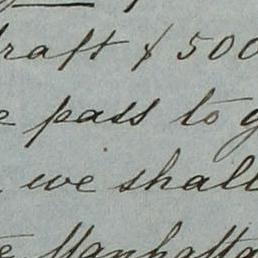 draft $ 500
pass to
we shall
Manhatta